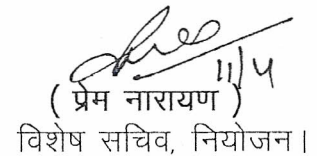 11/4
( प्रेम नारायण )
विशेष सचिव, नियोजन।